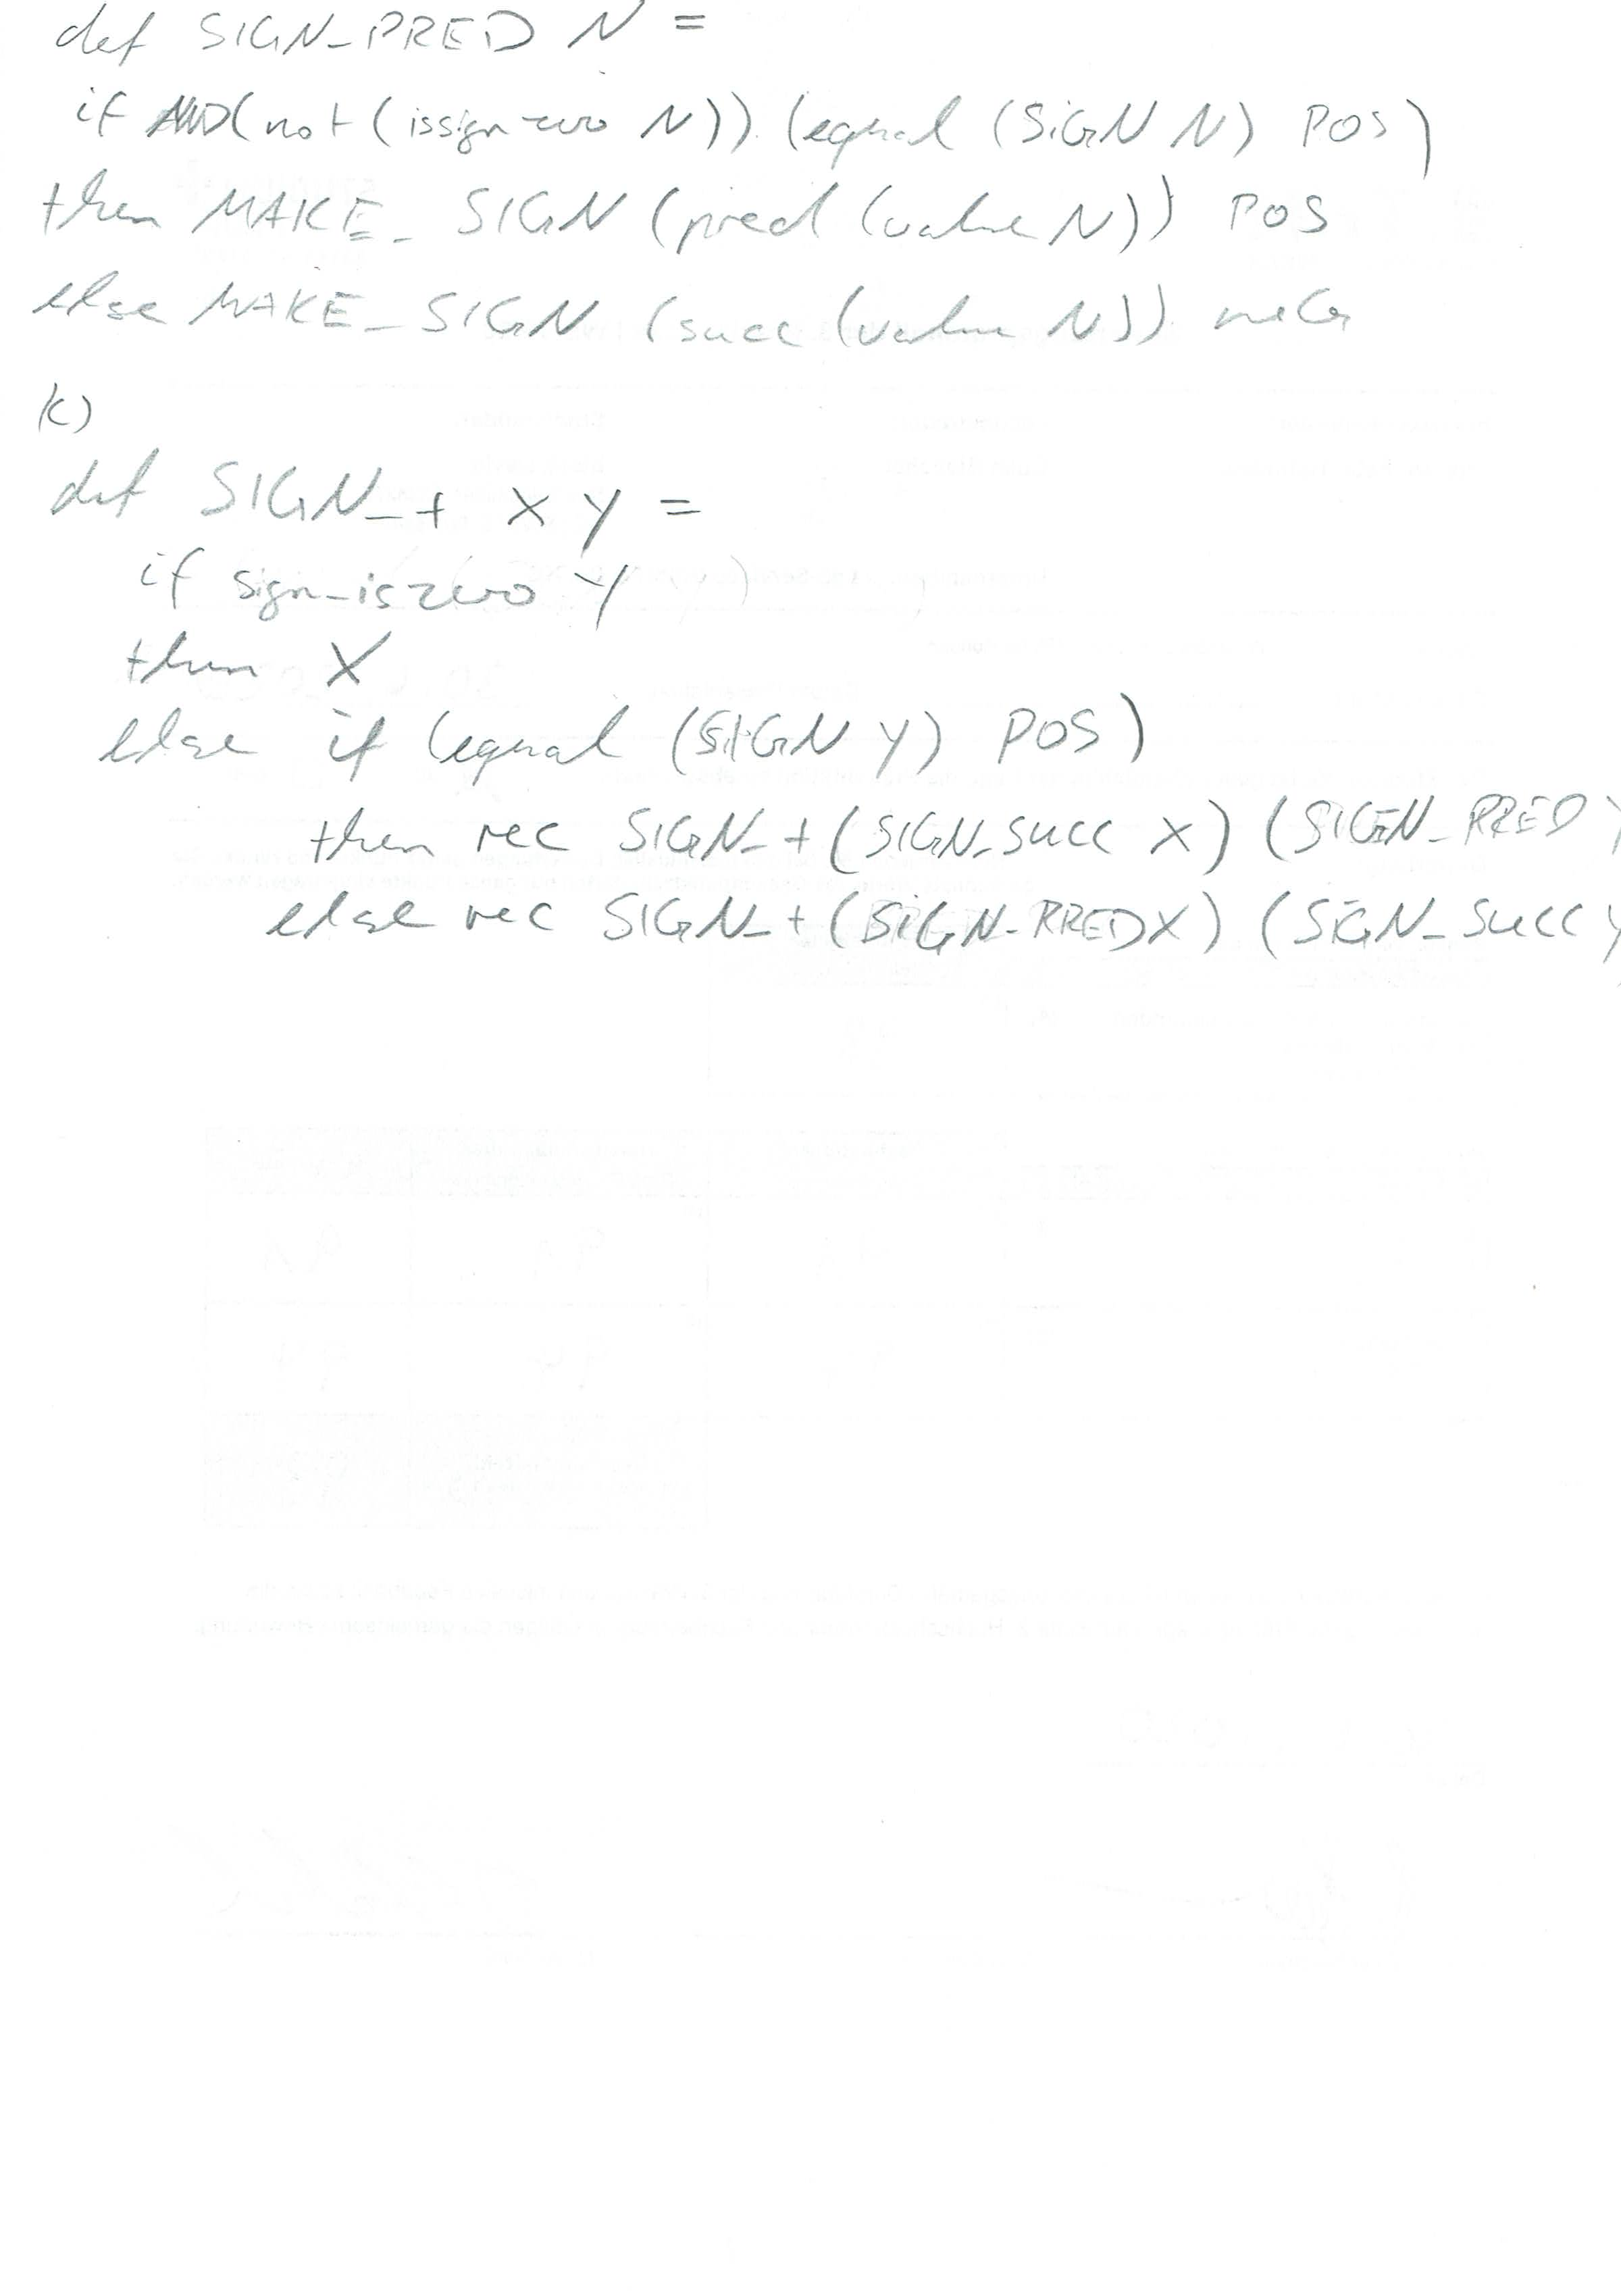 def SIGN_PRED N =
if AND(not (issignzero N)) (equal (SIGN N) POS)
then MAKE_SIGN (pred (value N)) POS
else MAKE_SIGN (succ (value N)) neG
(c)
def SIGN_+ X Y =
if sign_iszero Y
then X
else if (equal (SIGN Y) POS)
then rec SIGN_+ (SIGN_SUCC X) (SIGN_PRED Y
else rec SIGN_+ (SIGN_PRED X) (SIGN_SUCC Y